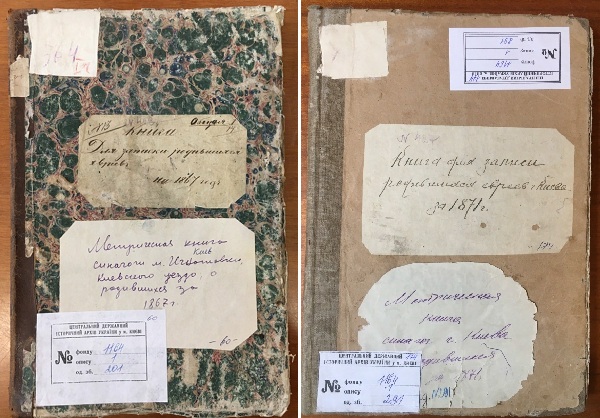 364
№ 13
Книга
Для записки родившихся
евреевъ
на 1867 годъ
Метрическая книга
синагоги м. Игнатовки
Киев
Киевского уезда о
родившихся за
1867 г
-60-
60
ЦЕНТРАЛЬНИЙ ДЕРЖАВНИЙ
ІСТОРИЧНИЙ АРХІВ УКРАЇНИ у м. КИЄВІ
№
фонду 1164
опису 1
од. зб. 201
№
фонду 1164
опису 1
од. зб.
Книга для записи
родившихся евреев г. Киева
за 1871 г.
Метрическая
книга
синаг. г. Киева
ЦЕНТРАЛЬНИЙ ДЕРЖАВНИЙ
ІСТОРИЧНИЙ АРХІВ УКРАЇНИ у м. КИЄВІ
№
фонду 1164
опису 1
од. зб. 291